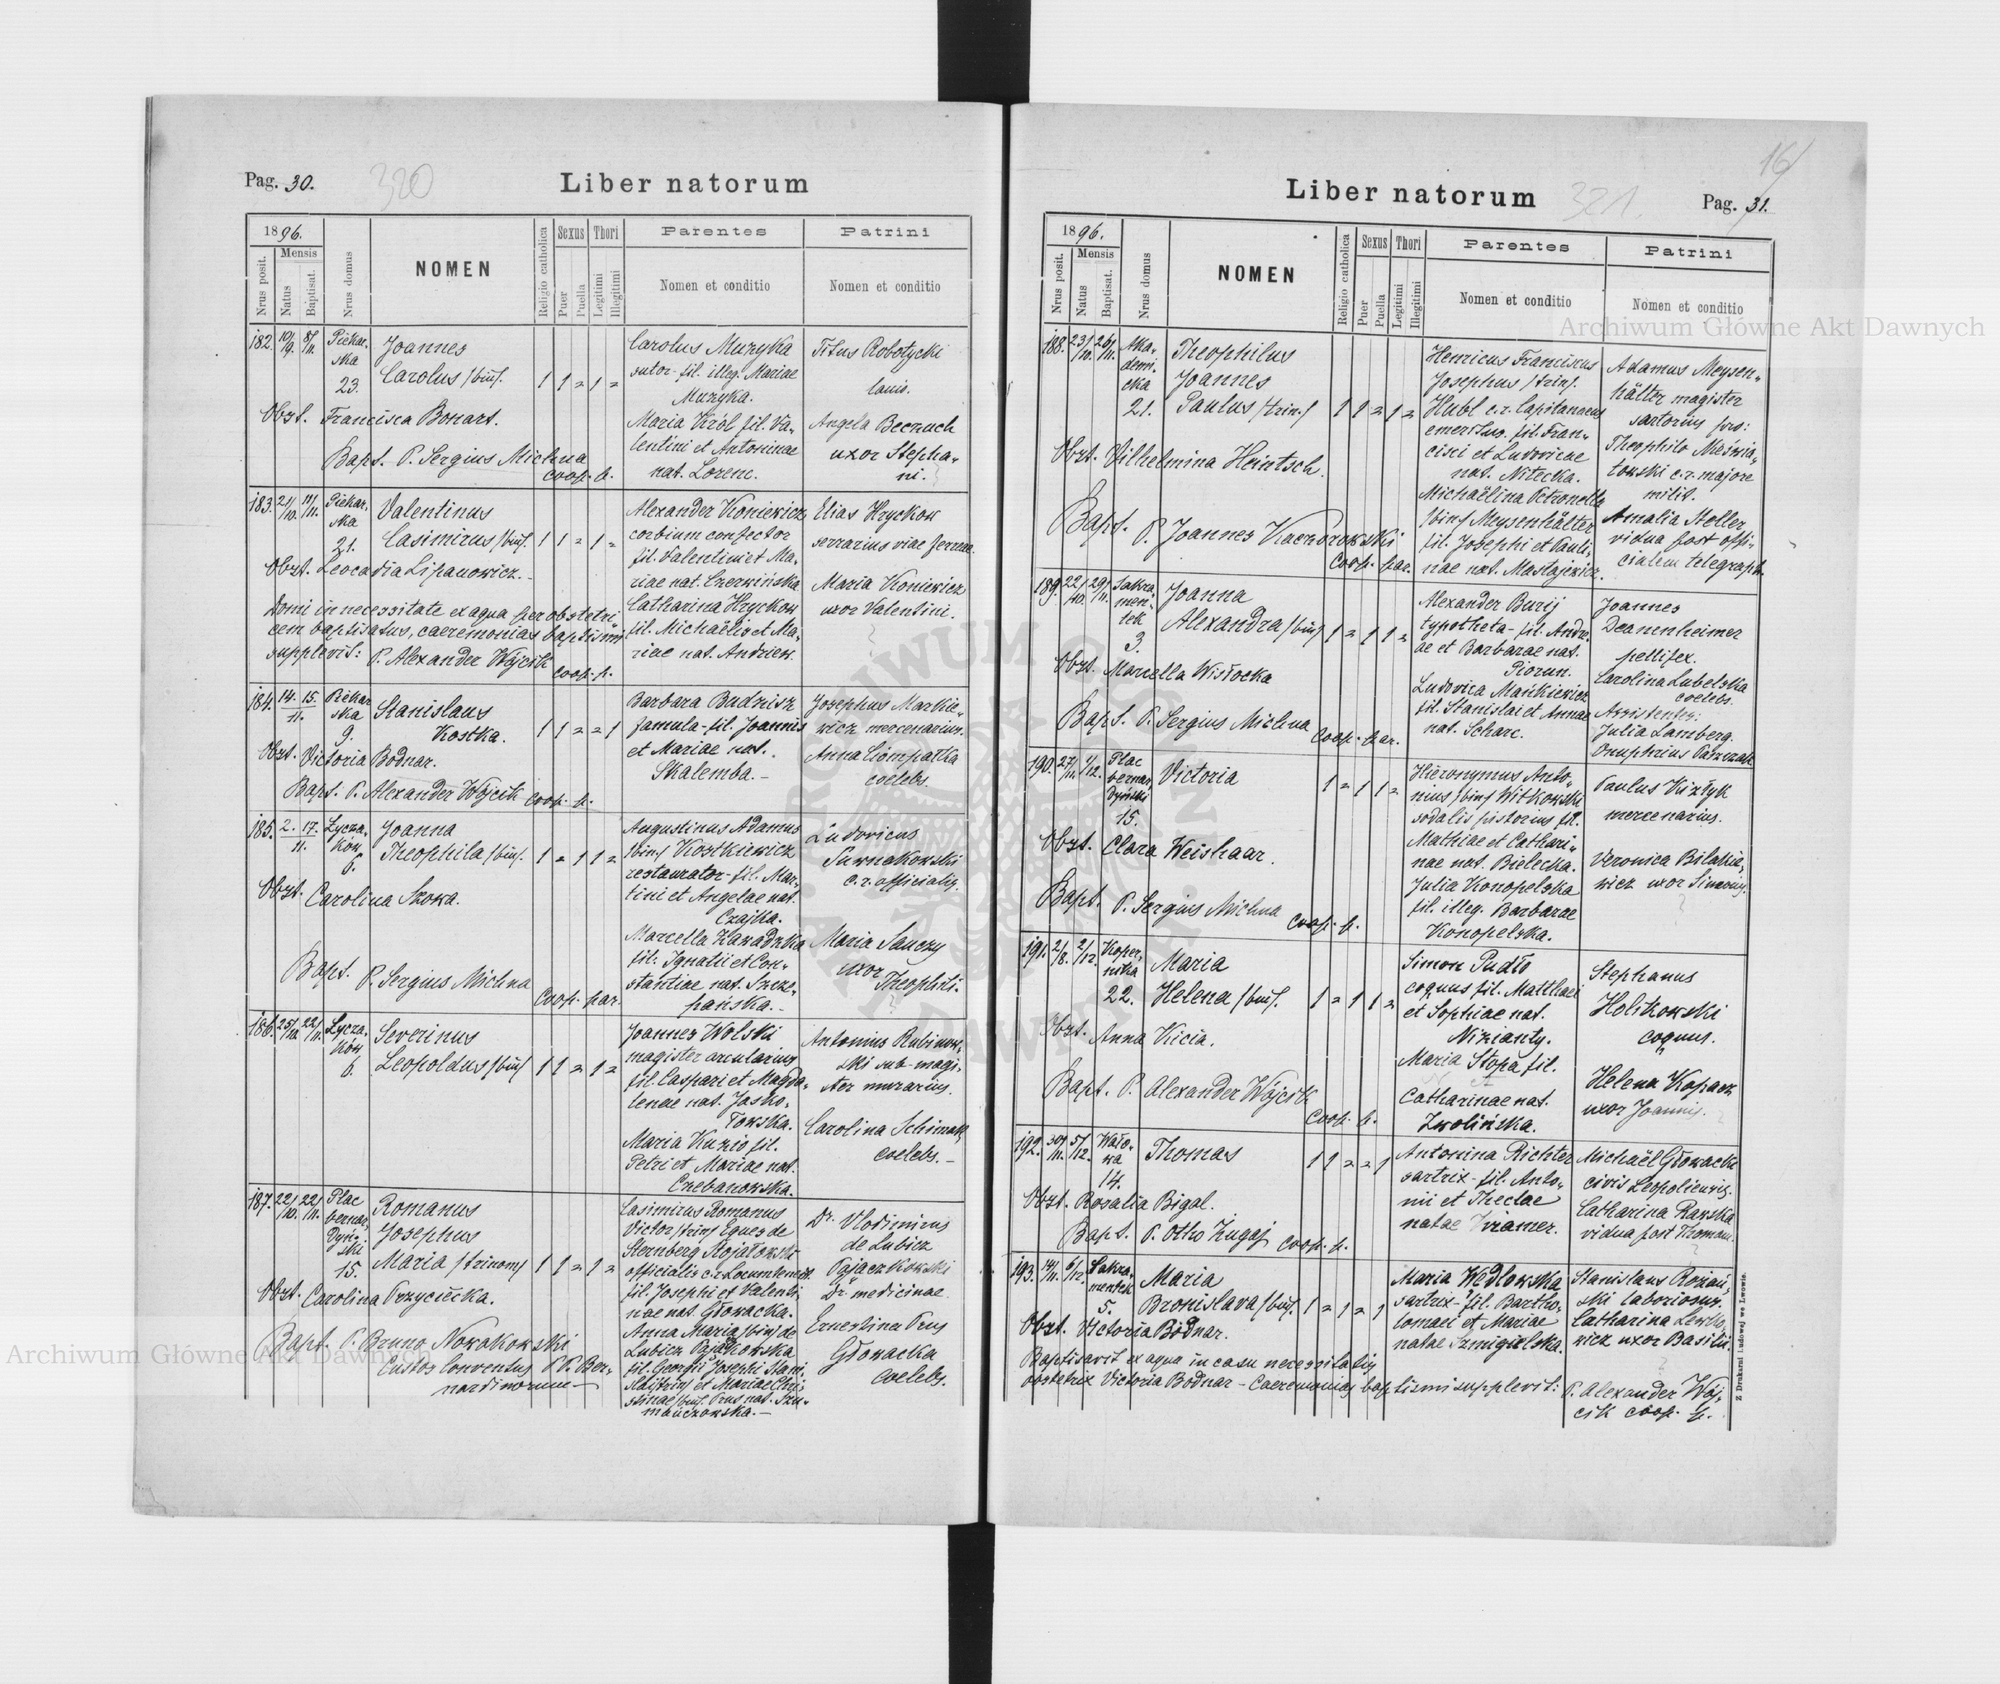 Pag. 30.
320
Liber natorum
1896.
Nrus posit.
Mensis
Natus
Baptisat.
Nrus domus
NOMEN
Religio catholica
Sexus
Puer
Puella
Thori
Legitimi
Illegitimi
Parentes
Nomen et conditio
Patrini
Nomen et conditio
182. 10/9. 8/11.
Piekar-
ska
23.
Joannes
Carolus /bin/.
1 1 = 1 =
Carolus Muzyka
sutor - fil. illeg. Mariae
Muzyka.
Maria Król fil. Va-
lentini et Antoninae
nat. Lorenc.
Titus Robotycki
lanio.
Angela Beczuch
uxor Stepha-
ni.
Obst. Francisca Bonart.
Bapt. P. Sergius Michna
coop. p.
183. 21/10. 11/11.
Piekar-
ska
21.
Valentinus
Casimirus /bin/.
1 1 = 1 =
Alexander Koniewicz
corbium confector
fil. Valentini et Ma-
riae nat. Czerwińska
Catharina Hryckow
fil. Michaëlis et Ma-
riae nat. Andriew.
Elias Hryckow
serrarius viae ferreae.
Maria Koniewicz
uxor Valentini.
Obst. Leocadia Lipanowicz.
Domi in necessitate ex aqua per obstetri-
cem baptisatus, caeremonias baptismi
supplevit: P. Alexander Wójcik
coop. p.
184. 14. 15.
11.
Piekar
ska
9.
Stanislaus
Kostka.
1 1 = = 1
Barbara Budzisz
famula - fil. Joannis
et Mariae nat.
Skalemba. -
Josephus Markie-
wicz mercenarius.
Anna Ciompałka
coelebs.
Obst. Victoria Bodnar.
Bapt. P. Alexander Wójcik coop. p.
185. 2. 17.
11.
Łycza-
ków
6.
Joanna
Theophila /bin/.
1 = 1 1 =
Augustinus Adamus
/bin/ Kostkiewicz
restaurator - fil. Mar-
tini et Angelae nat.
Czajka.
Marcella Zawadzka
fil. Ignatii et Con-
stantiae nat. Szcze-
pańska. -
Ludovicus
c. r. officialis.
Maria Sanczy
uxor
Theophili.
Obst. Carolina Szowa.
Bapt. P. Sergius Michna
coop. par.
186. 25/10 22/11.
Łycza-
ków
6.
Severinus
Leopoldus /bin/
1 1 = 1 =
Joannes Wolski
magister arcularius
fil. Caspari et Magda-
lenae nat. Jasko-
łowska.
Maria Kuzio fil.
Petri et Mariae nat.
Czebanowska.
Antonius Rubinow-
ski sub-magi-
ster murarius.
Carolina Schimak
coelebs. -
187. 22/10. 22/11.
Plac
bernar-
dyń-
ski
15.
Romanus
Josephus
Maria /trinom/
1 1 = 1 =
Casimirus Romanus
Victor /trin/ Eques de
Sternberg Stojałowski
officialis c. r. Locumtenent.
fil. Josephi et Valenti-
nae nat. Głowacka.
Anna Maria /bin/ de
Lubicz Pajączkowska
fil. Georgii Josephi Stani-
slai /trin/ et Mariae Chri-
stinae /bin/. Prus nat. Szu-
mańczowska. -
Dr. Vlodimirus
de Lubicz
Pajączkowski
Dr. medicinae
Ernestina Prus
Głowacka
coelebs.
Obst. Carolina Przycićka.
Bapt. P. Bruno Nowakowski
Custos Conventus P.P. Ber-
nardinorum -
16
Liber natorum
321.
Pag. 31.
1896.
Nrus posit.
Mensis
Natus
Baptisat.
Nrus domus
NOMEN
Religio catholica
Sexus
Puer
Puella
Thori
Legitimi
Illegitimi
Parentes
Nomen et conditio
Patrini
Nomen et conditio
188. 23/10. 26/11.
Aka-
demi-
cka
21.
Theophilus
Joannes
Paulus /trin/
1 1 = 1 =
Henricus Franciscus
Josephus /trin/.
Hubl c. r. Capitaneus
emeritus. fil. Fran-
cisci et Ludovicae
nat. Nitecka.
Michaëlina Petronella
/bin/ Meysenhälter
fil. Josephi et Pauli-
nae nat. Mastajewicz.
Adamus Meysen-
hälter magister
sartorius pro:
Theophilo Maśnia-
towski c. r. majore
milit.
Amalia Stoller
vidua post offi-
cialem telegraph.
Obst. Vilhelmina Heintsch.
Bapt. P. Joannes Kaczorowski
coop. par.
189. 22/10. 29/11.
Sakra-
men-
tek
3.
Joanna
Alexandra /bin/
1 = 1 1 =
Alexander Burij
typotheta - fil. Andre-
ae et Barbarae nat.
Piorun.
Ludovica Mańkiewicz
fil. Stanislai et Annae
nat. Scharc.
Joannes
Deanenheimer
pellifex.
Carolina Lubelska
coelebs.
Assistentes:
Julia Lamberg.
Onuphrius Parzczak
Obst. Marcella Wisłocka
Bapt. P. Sergius Michna
coop. par.
190. 27/11. 1/12.
Plac
bernar-
dyński
15.
Victoria
1 = 1 1 =
Hieronymus Anto-
nius /bin/ Witkowski
sodalis pistorius fil.
Mathiae et Cathari-
nae nat. Bielecka.
Julia Konopelska
fil. illeg. Barbarae
Konopelska.
Paulus Kiztyk
mercenarius.
Veronica Bilakie-
wicz uxor Simeonis.
Obst. Clara Weishaar.
Bapt. P. Sergius Michna coop. p.
191. 2/8. 2/12.
Koper-
nika
22.
Maria
Helena /bin/.
1 = 1 1 =
Simon Pudło
coquus fil. Matthaei
et Sophiae nat.
Nizianty.
Maria Stopa fil.
Catharinae nat.
Zwolińska.
Stephanus
Holikowski
coquus.
Helena Kopacz
uxor Joannis.
Obst. Anna Kicia.
Bapt. P. Alexander Wójcik
coop. p.
192. 30/11. 5/12.
Wało-
wa
14.
Thomas
1 1 = = 1
Antonina Richter
sartrix - fil. Anto-
nii et Theclae
natae Kramer.
Michaël Głowacki
civis Leopoliensis.
Catharina Rawska
vidua post Thomam.
Obst. Rosalia Bigal.
Bapt. P. Otto Zugaj coop. p.
193. 14/11. 6/12.
Sakra-
mentek
5.
Maria
Bronislava /bin/.
1 = 1 = 1
Maria Wedlowska
sartrix - fil. Bartho-
lomaei et Mariae
natae Szmigielska.
Stanislaus Rożań-
ski laboriosus.
Catharina Lewko-
wicz uxor Basilii.
Obst. Victoria Bodnar.
Baptisavit ex aqua in casu necessitatis
obstetrix Victoria Bodnar - Caeremonias baptismi supplevit: P. Alexander Wój-
cik coop. p.
Z Drukarni Ludowej we Lwowie.
Archiwum Główne Akt Dawnych
Archiwum Główne Akt Dawnych